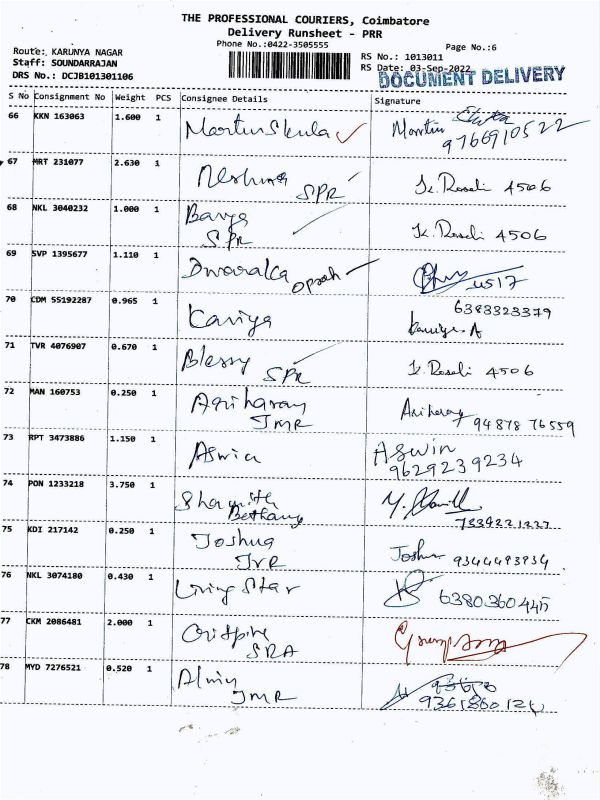 THE PROFESSIONAL COURIERS, Coimbatore
Delivery Runsheet - PRR
Phone No.:0422-3505555
Page No.:6
Route: KARUNYA NAGAR
RS No.: 1013011
Staff: SOUNDARRAJAN
RS Date: 03-Sep-2022
DRS No.: DCJB101301106
DOCUMENT DELIVERY
S No Consignment No Weight PCS Consignee Details Signature
66 KKN 163063 1.600 1 Martin
9766910522
67 MRT 231077 2.630 1 Neshma
SPR
Jc. Roseli 4506
68 NKL 3040232 1.000 1 Banya
SPR
Jc. Roseli 4506
69 SVP 1395677 1.110 1 Dwaraka
oprah
4517
70 CDM 55192287 0.965 1 Kaviya
6383323379
Kaviya. A
71 TVR 4076907 0.670 1 Blessy
SPR
Jc. Roseli 4506
72 MAN 160753 0.250 1 Ariharan
JMR
Ariharan
94878 76559
73 RPT 3473886 1.150 1 Aswin
Aswin
9629239234
74 PON 1233218 3.750 1
Bethany
7339221227
75 KDI 217142 0.250 1 Joshua
JVR
Joshua 9344493934
76 NKL 3074180 0.430 1 Living Star
77 CKM 2086481 2.000 1
SRA
78 MYD 7276521 0.520 1
JMR